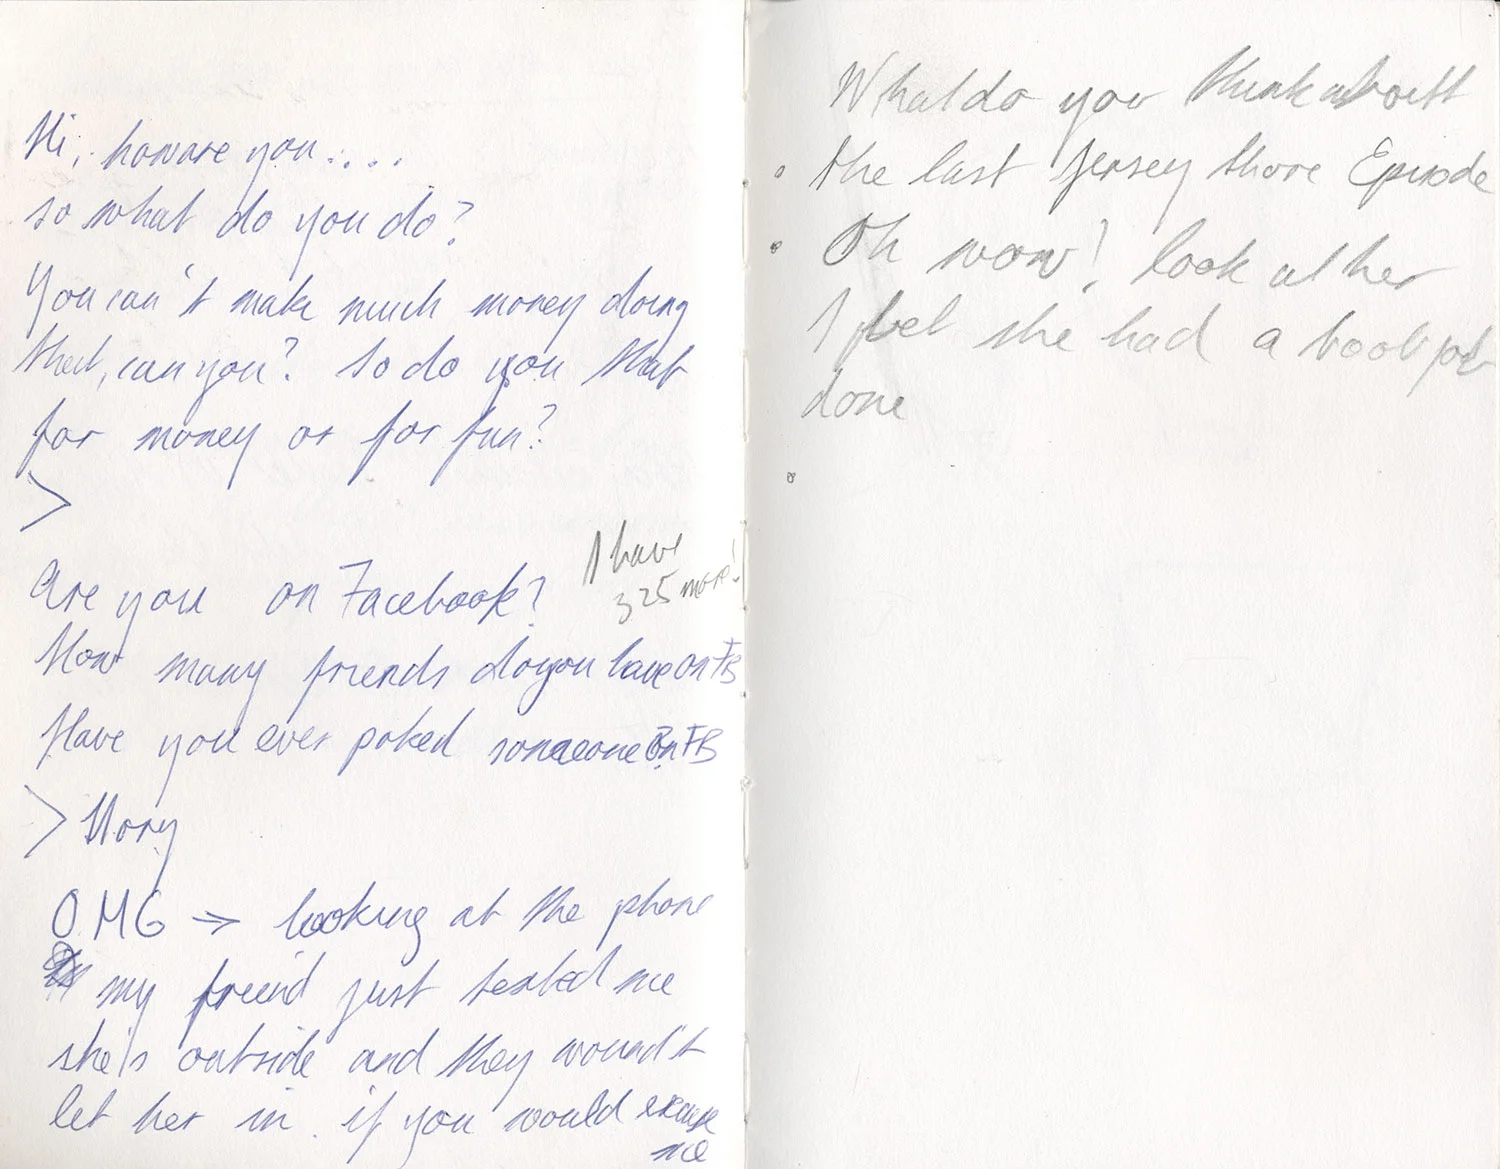 Hi, how are you....
so what do you do?
You can't make much money doing
that, can you? So do you that
for money or for fun?
>
Are you on Facebook?
I have
325 more!
How many friends do you have on FB
Have you ever poked someone on FB
> Story
OMG → looking at the phone
my friend just texted me
she's outside and they wound't
let her in. if you would excuse
me
What do you think about
the last Jersey Shore Episode
Oh wow! look at her
I bet she had a boob job
done